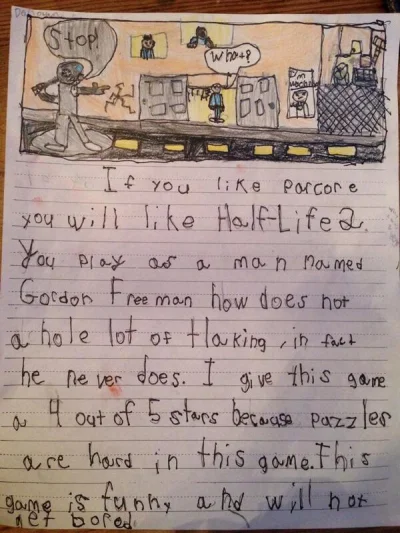 Stop!
What?
If you like Parcore
you will like Half-Life 2.
You play as a man named
Gordon Freeman how does not
a hole lot of tlaking, in fact
he never does. I give this game
a 4 out of 5 stars because pazzles
are hard in this game. This
game is funny and will not
get bored.